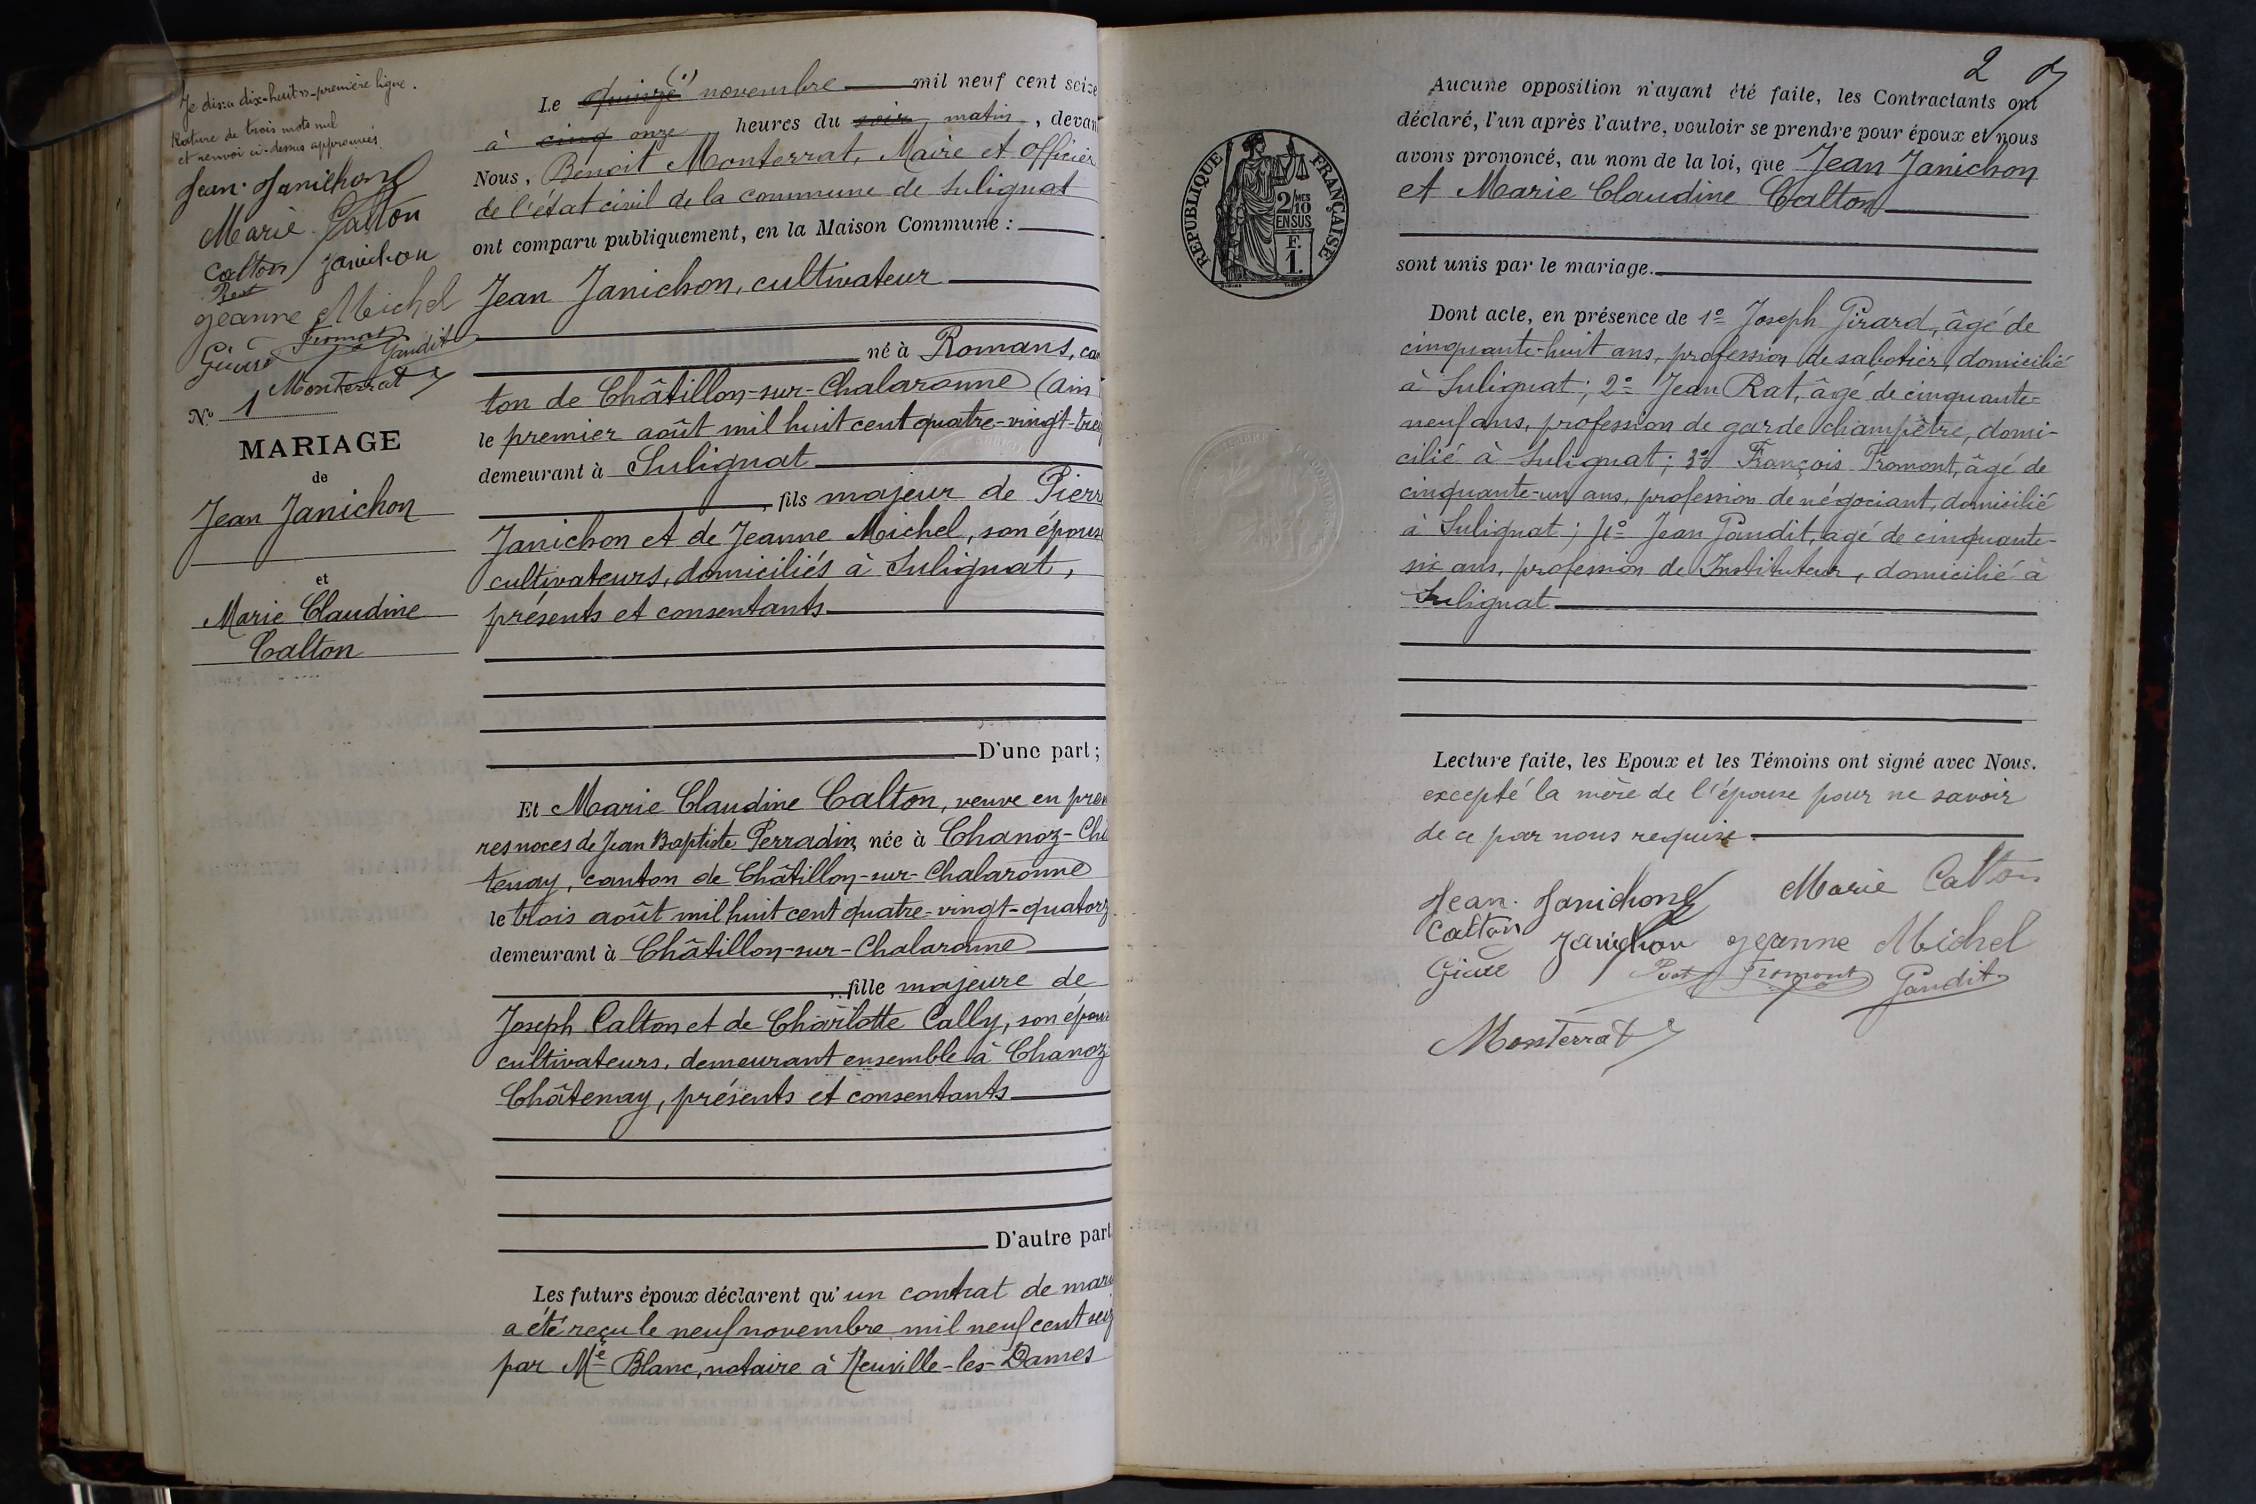 Je dis:a dix-huit »-première ligne.
Rature de trois mots nul
et renvoi ci-dessus approuvés.
Jean Janichon
Marie Calton
Calton Janichon
Jeanne Michel
Fromont
Gandit
Monterrat
No 1
MARIAGE
de
Jean Janichon
et
Marie Claudine
Calton
Le quinze (1) novembre mil neuf cent seize
à cinq onze heures du soir matin, devan
Nous, Benoit Monterrat, Maire et officier
de l'état civil de la commune de Sulignat
ont comparu publiquement, en la Maison Commune :
Jean Janichon, cultivateur
né à Romans, can
ton de Châtillon-sur-Chalaronne (Ain
le premier août mil huit cent quatre-vingt-trei
demeurant à Sulignat
, fils majeur de Pierre
Janichon et de Jeanne Michel, son épouse
cultivateurs, domiciliés à Sulignat,
présents et consentants
D'une part ;
Et Marie Claudine Calton, veuve en prem
res noces de Jean Baptiste Perradin, née à Chanoz-Châ
tenay, canton de Châtillon-sur-Chalaronne
le trois août mil huit cent quatre-vingt-quatorz
demeurant à Châtillon-sur-Chalaronne
, fille majeure de
Joseph Calton et de Charlotte Cally, son épouse
cultivateurs, demeurant ensemble à Chanoz-
Châtenay, présents et consentants
D'autre part
Les futurs époux déclarent qu'un contrat de mari
a été reçu le neuf novembre mil neuf cent seiz
par Me Blanc, notaire à Neuville-les-Dames
2
RÉPUBLIQUE FRANÇAISE
2/10 MES
EN SUS
F.
1.
Aucune opposition n'ayant été faite, les Contractants ont
déclaré, l'un après l'autre, vouloir se prendre pour époux et nous
avons prononcé, au nom de la loi, que Jean Janichon
et Marie Claudine Calton
sont unis par le mariage.
Dont acte, en présence de 1o Joseph Girard, âgé de
cinquante-huit ans, profession de sabotier, domicilié
à Sulignat ; 2o Jean Rat, âgé de cinquante=
neuf ans, profession de garde champêtre, domi-
cilié à Sulignat ; 3o François Fromont, âgé de
cinquante-un ans, profession de négociant, domicilié
à Sulignat ; 4o Jean Gandit, âgé de cinquante-
six ans, profession de Instituteur, domicilié à
Sulignat
Lecture faite, les Epoux et les Témoins ont signé avec Nous.
excepté la mère de l'épouse pour ne savoir
de ce par nous requise.
Jean Janichon Marie Calton
Calton Janichon Jeanne Michel
Fromont Gandit
Monterrat